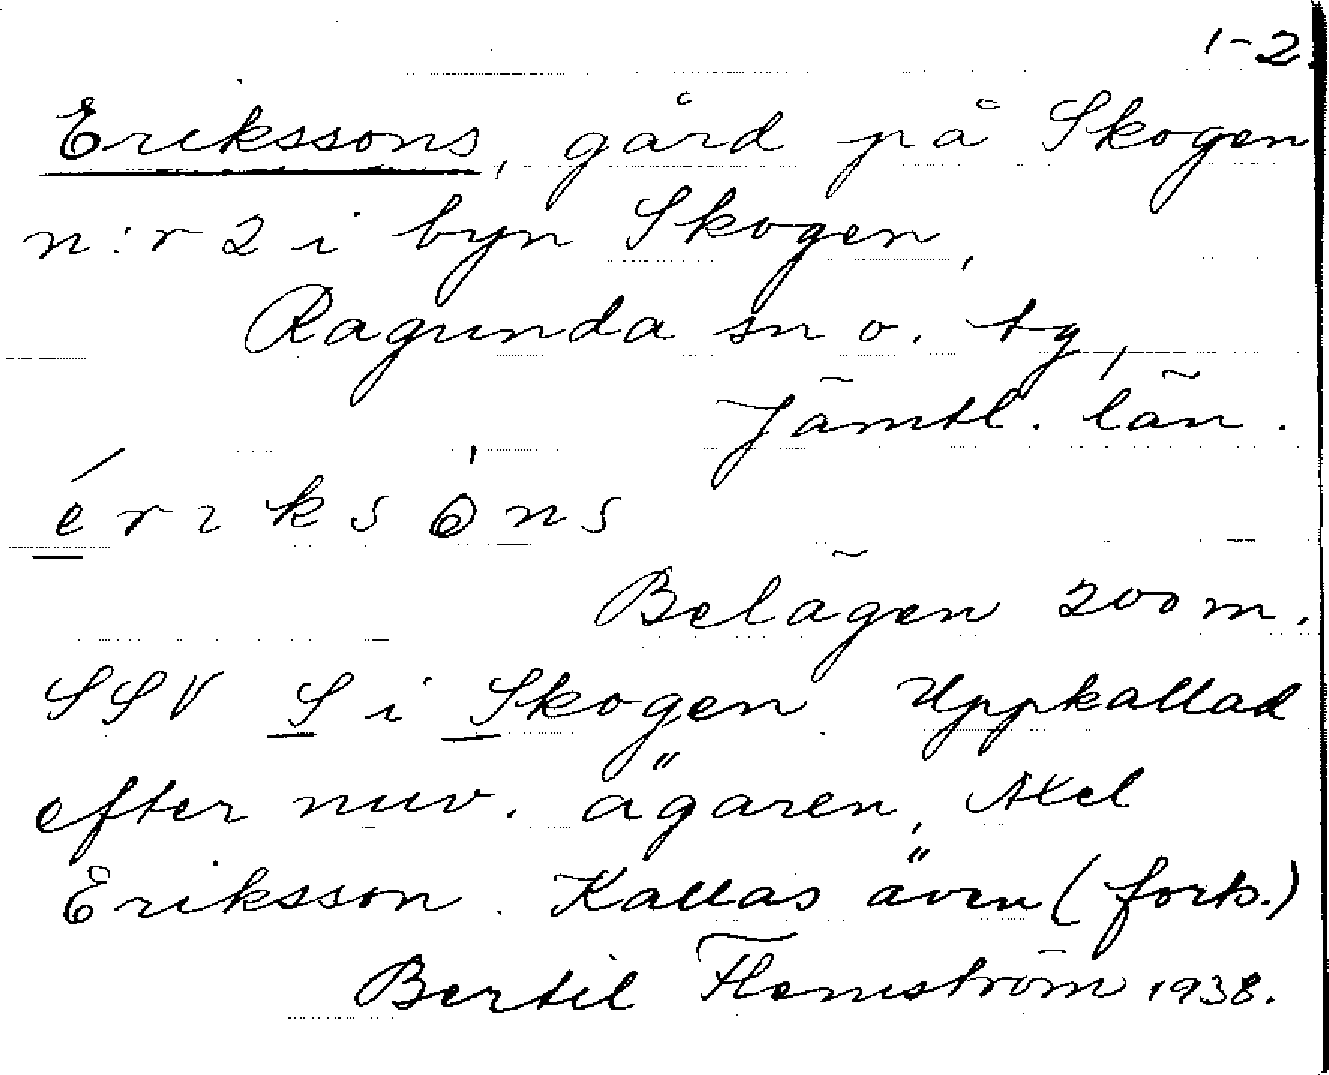 1-2.
Erikssons, gård på Skogen
n:r 2 i byn Skogen,
Ragunda sn o. tg,
Jämtl. län.
é r ı k s ò n s
Belägen 200 m.
SSV S i Skogen. Uppkallad
efter nuv. ägaren, Axel
Eriksson. Kallas även (forts.)
Bertil Flemström 1938.